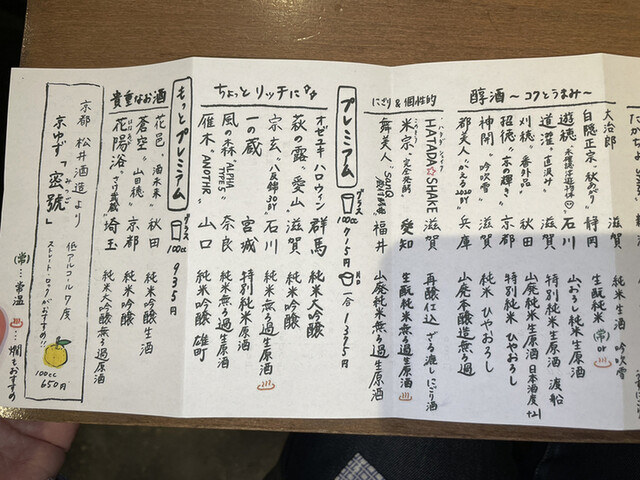 醇酒～コクとうまみ～
大治郎 滋賀 純米生酒 吟吹雪
白隠正宗 "秋あがり" 静岡 生酛純米 (常)or♨
遊穂 石川 山おろし純米生原酒
道灌 "直汲み" 滋賀 特別純米生原酒 渡船
刈穂 "番外品" 秋田 山廃純米生原酒 日本酒度+21
招德 "京の輝き" 京都 特別純米 ひやおろし
神開 "吟吹雪" 滋賀 純米 ひやおろし
都美人 兵庫 山廃本醸造無ろ過
にごり&個性的
HATADA☆SHAKE 滋賀 再醸仕込 ざる漉しにごり酒
米宗 "完全発酵" 愛知 生酛純米無ろ過生原酒♨
舞美人 "SanQ" 福井 山廃純米無ろ過生原酒
プレミアム グラス100cc 715円 一合 1375円
ちょっとリッチに
オゼユキ ハロウィン 群馬 純米大吟醸
萩の露 "愛山" 滋賀 純米吟醸
宗玄 "八反錦30BY" 石川 純米無ろ過生原酒♨
一の蔵 宮城 特別純米原酒
風の森 "ALPHA TYPE5" 奈良 純米無ろ過生原酒
雁木 "ANOTHER" 山口 純米吟醸 雄町
もっとプレミアム グラス100cc 935円
貴重なお酒
花邑 秋田 純米吟醸生酒
蒼空 "山田穂" 京都 純米吟醸
花陽浴 埼玉 純米大吟醸無ろ過原酒
京都 松井酒造より
京ゆず「蜜號」
低アルコール 7度
ストレート・ロックがおすすめ!!
100cc
650円
(常)…常温 ♨…燗もおすすめ